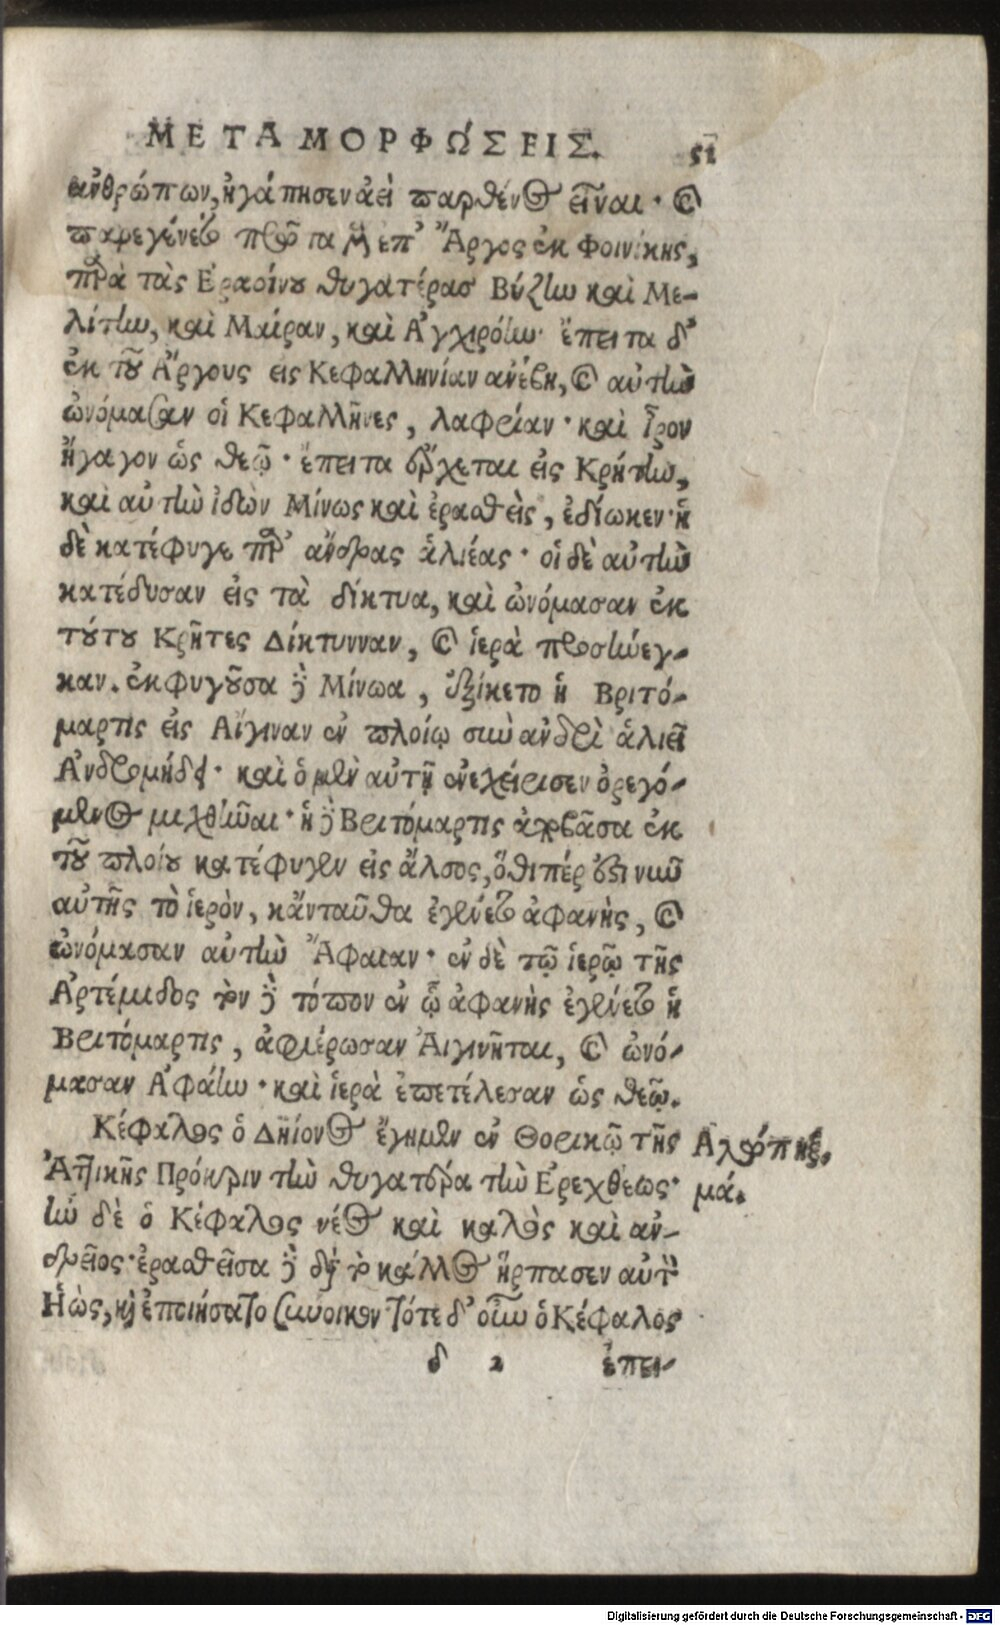 ΜΕΤΑΜΟΡΦΩΣΕΙΣ. 51
ἀνθρώπων, ἠγάπησεν ἀεὶ παρθένος εἶναι· καὶ
παρεγένετο πρῶτα μὲν ἐπ' Ἄργος ἐκ Φοινίκης,
παρὰ τὰς Ἐρασίνου θυγατέρας Βύζην καὶ Με-
λίτην, καὶ Μαίραν, καὶ Ἀγχιρόην· ἔπειτα δ'
ἐκ τοῦ Ἄργους εἰς Κεφαλληνίαν ἀνέβη, καὶ αὐτὴν
ὠνόμασαν οἱ Κεφαλλῆνες, λαφρίαν· καὶ ἱρον
ἤγαγον ὡς θεῷ· ἔπειτα ἔρχεται εἰς Κρήτην,
καὶ αὐτὴν ἰδὼν Μίνως καὶ ἐρασθεὶς, ἐδίωκεν· ἡ
δὲ κατέφυγε παρ' ἄνδρας ἁλιέας· οἱ δὲ αὐτὴν
κατέδυσαν εἰς τὰ δίκτυα, καὶ ὠνόμασαν ἐκ
τούτου Κρῆτες Δίκτυνναν, καὶ ἱερὰ προσήνεγ-
καν. ἐκφυγοῦσα δὲ Μίνωα, ἐξίκετο ἡ Βριτό-
μαρτις εἰς Αἴγιναν ἐν πλοίῳ σὺν ἀνδρὶ ἁλιεῖ
Ἀνδρομήδει· καὶ ὁ μὲν αὐτῇ ἐνεχείρισεν ὀρεγό-
μενος μιχθῆναι· ἡ δὲ Βριτόμαρτις ἀποβᾶσα ἐκ
τοῦ πλοίου κατέφυγεν εἰς ἄλσος, ὅθιπέρ ἐστι νῦν
αὐτῆς τὸ ἱερὸν, κἀνταῦθα ἐγένετο ἀφανὴς, καὶ
ὠνόμασαν αὐτὴν Ἄφαιαν· ἐν δὲ τῷ ἱερῷ τῆς
Ἀρτέμιδος τὸν δὲ τόπον ἐν ᾧ ἀφανὴς ἐγένετο ἡ
Βριτόμαρτις, ἀφιέρωσαν Αἰγινῆται, καὶ ὠνό-
μασαν Ἀφάην· καὶ ἱερὰ ἐπετέλεσαν ὡς θεῷ.
Κέφαλος ὁ Δηίονος ἔγημεν ἐν Θορικῷ τῆς
Ἀττικῆς Πρόκριν τὴν θυγατέρα τὴν Ἐρεχθέως·
ἦν δὲ ὁ Κέφαλος νέος καὶ καλὸς καὶ ἀν-
δρεῖος· ἐρασθεῖσα δὲ διὰ τὸ κάλλος ἥρπασεν αὐτὸν
Ἠὼς, καὶ ἐποιήσατο σύνοικον· τότε δ' οὖν ὁ Κέφαλος
Ἀλώπηξ.
μά.
δ 2 ἐπει-
Digitalisierung gefördert durch die Deutsche Forschungsgemeinschaft - DFG